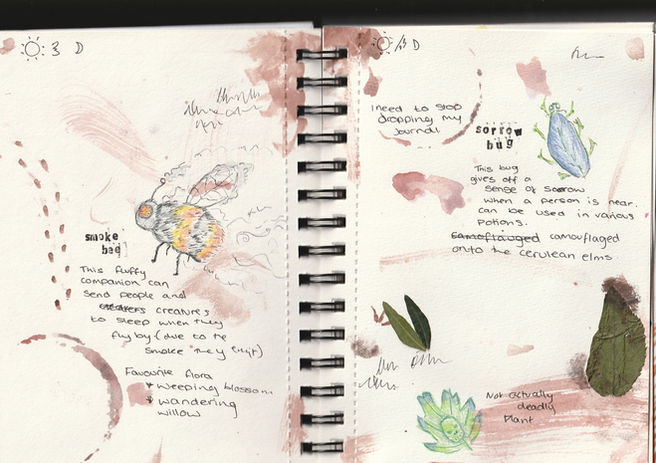 3 D
smoke
bee
This fluffy
companion can
send people and
creatures
to sleep when they
fly by (due to the
smoke they emit)
Favourite flora
weeping blossom
wandering
willow
D
I need to stop
dropping my
journal
sorrow
bug
This bug
gives off a
sense of sorrow
when a person is near.
can be used in various
potions.
camoflauged camouflaged
onto the cerulean elms.
Not actually
deadly
plant